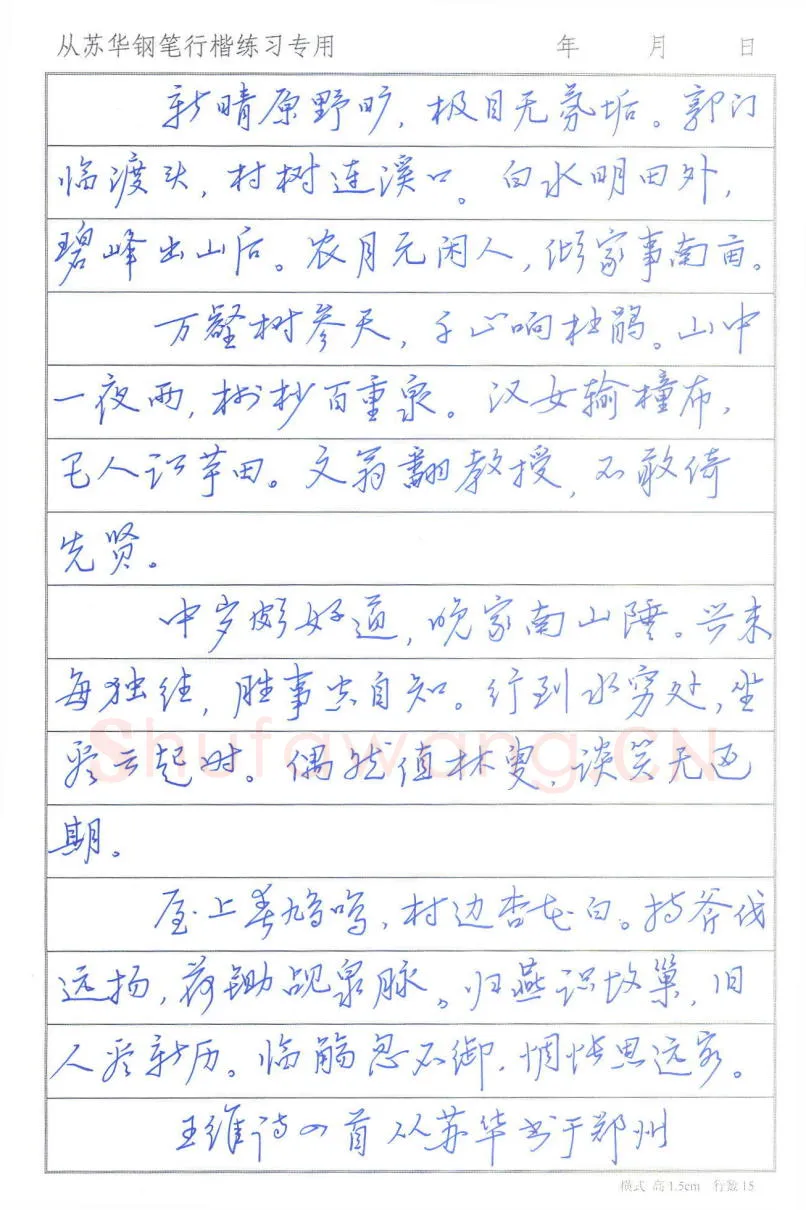 从苏华钢笔行楷练习专用 年 月 日
新晴原野旷，极目无氛垢。郭门
临渡头，村树连溪口。白水明田外，
碧峰出山后。农月无闲人，倾家事南亩。
万壑树参天，千山响杜鹃。山中
一夜雨，树杪百重泉。汉女输橦布，
巴人讼芋田。文翁翻教授，不敢倚
先贤。
中岁颇好道，晚家南山陲。兴来
每独往，胜事空自知。行到水穷处，坐
看云起时。偶然值林叟，谈笑无还
期。
屋上春鸠鸣，村边杏花白。持斧伐
远扬，荷锄觇泉脉。归燕识故巢，旧
人看新历。临觞忽不御，惆怅思远客。
王维诗四首 从苏华书于郑州
Shufawang.CN
横式 高1.5cm 行数15